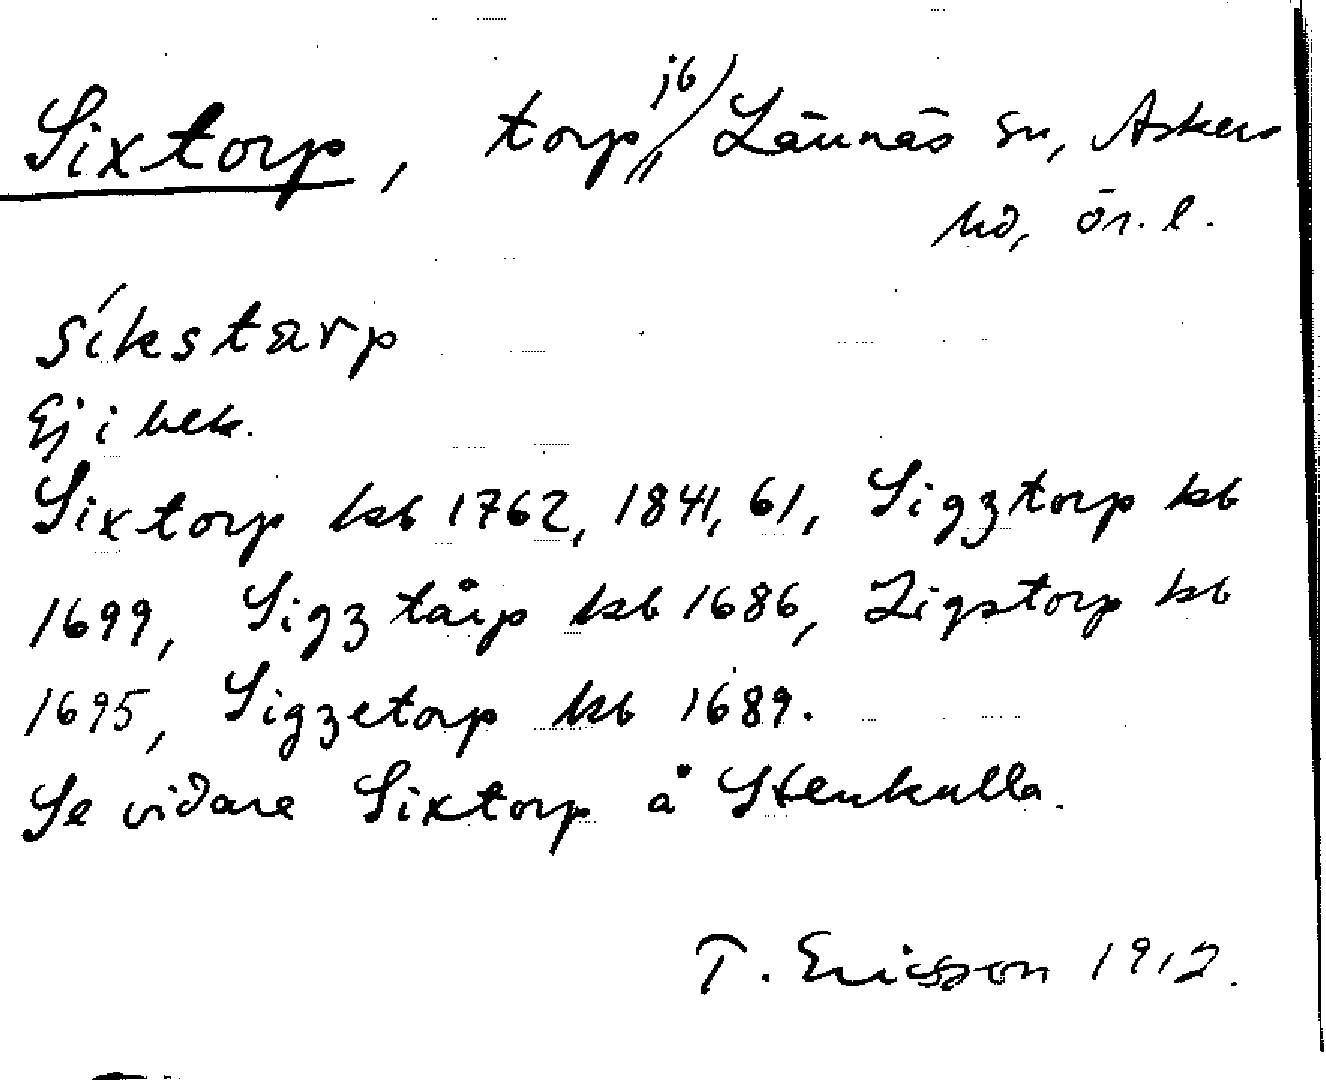 Sixtorp, torp, jb) Lännäs sn, Askers
hd, ör. l.
síkstarp
Ej i bek.
Sixtorp kb 1762, 1841, 61, Sigztorp kb
1699, Sigztårp kb 1686, Zigstorp kb
1695, Sigzetorp kb 1689.
Se vidare Sixtorp å Stenkulla.
T. Ericsson 1912.